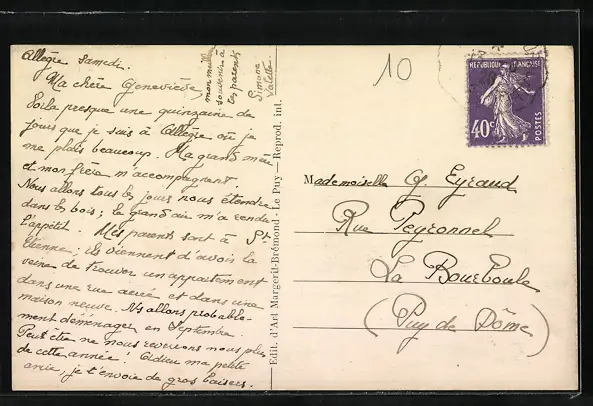 Allègre samedi.
Ma chère Geneviève,
Voilà presque une quinzaine de
jours que je suis à Allègre où je
me plais beaucoup. Ma grand'mère
et mon frère m'accompagnent
Nous allons tous les jours nous étendre
dans les bois ; le grand air m'a rendu
l'appétit. Mes parents sont à St
Etienne ; ils viennent d'avoir la
veine de trouver un appartement
dans une rue aérée et dans une
maison neuve. Ns allons probable-
ment déménager en Septembre
Peut être ne nous reverrons nous plus
de cette année ! Adieu ma petite
amie, je t'envoie de gros baisers.
mon meilleur
souvenir à
tes parents
Simone
Edit. d'Art Margerit-Brémond - Le Puy — Reprod. int.
10
REPUBLIQUE FRANÇAISE
40c
POSTES
Mademoiselle G. Eyraud
Rue Peyronnel
La Bourboule
(Puy de Dôme)